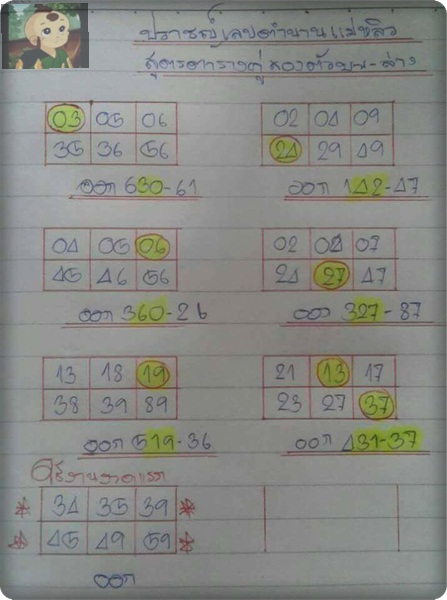 ปราชญ์เลขตำนานแม่ชลิว
สูตรตารางคู่ สองตัวบน-ล่าง
03 05 06
35 36 56
ออก 630-61
02 04 09
24 29 49
ออก 142-47
04 05 06
45 46 56
ออก 360-26
02 04 07
24 27 47
ออก 327-87
13 18 19
38 39 89
ออก 519-36
21 13 17
23 27 37
ออก 431-37
34 35 39
45 49 59
ออก